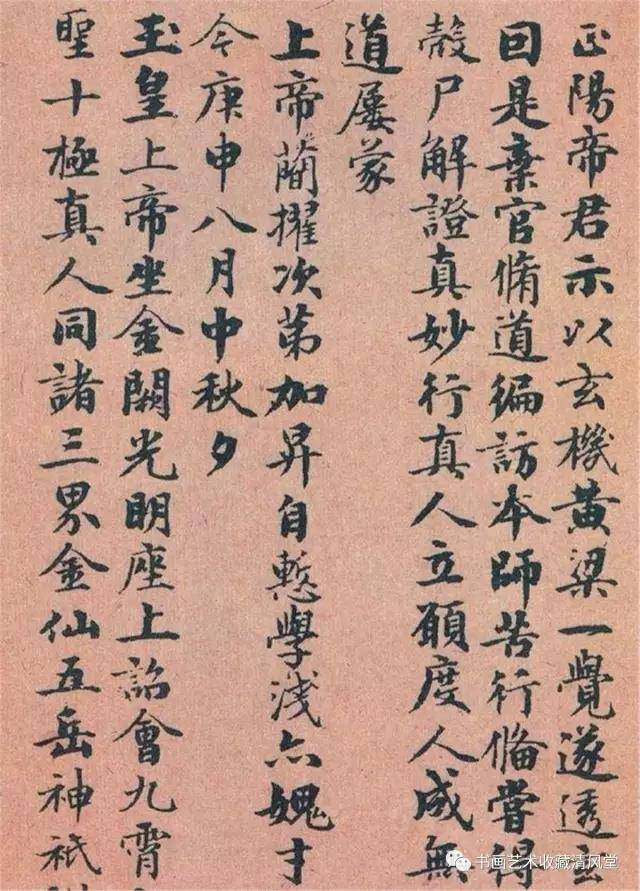 正陽帝君示以玄機黃梁一覺遂透
回是棄官脩道徧訪本師苦行備嘗得
殼尸解證真妙行真人立願度人成無
道屢蒙
上帝蕳擢次第加昇自慙學淺亦媿才
今庚申八月中秋夕
玉皇上帝坐金闕光明座上詔會九霄
聖十極真人同諸三界金仙五岳神祇
书画艺术收藏清风堂